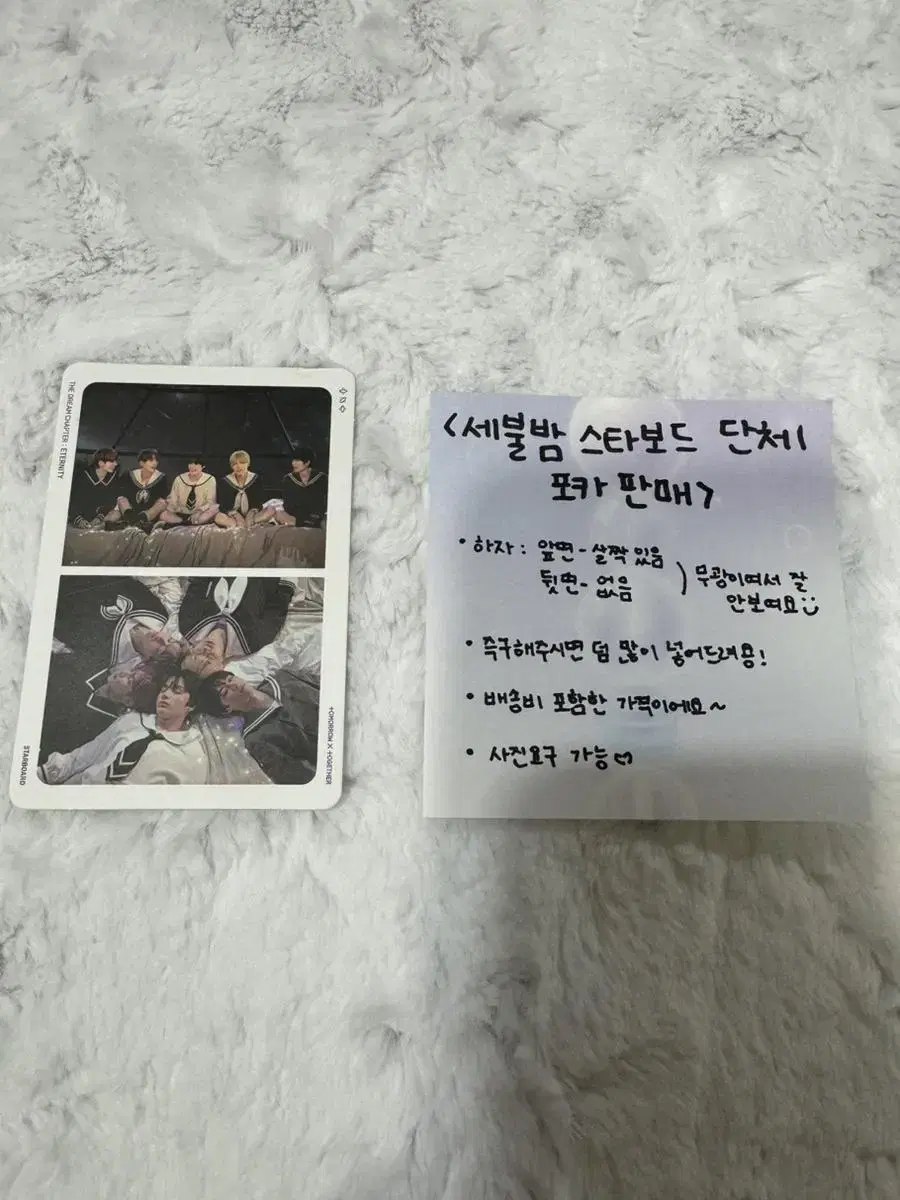 THE DREAM CHAPTER : ETERNITY
TOMORROW X TOGETHER
STARBOARD
<세불밤 스타보드 단체
포카 판매>
• 하자 : 앞면 - 살짝 있음
뒷면 - 없음
) 무광이여서 잘
안보여요
• 즉구해주시면 덤 많이 넣어드려용!
• 배송비 포함한 가격이에요~
• 사진요구 가능♡